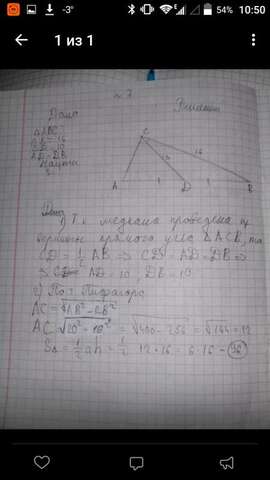 -3° 54% 10:50
1 из 1
№ 7
Дано Решение
△ABC
CB = 16
CD = 10
AD = DB
Найти
S
C
16
10
A D B
1) Т.к. медиана проведена из
вершины прямого угла △ACB, то
CD = 1/2 AB ⇒ CD = AD = DB ⇒
⇒ AD = 10 DB = 10
2) По т. Пифагора
AC = √AB² - CB²
AC = √20² - 16² = √400 - 256 = √144 = 12
S△ = 1/2 ah = 1/2 12 · 16 = 6 · 16 = 96